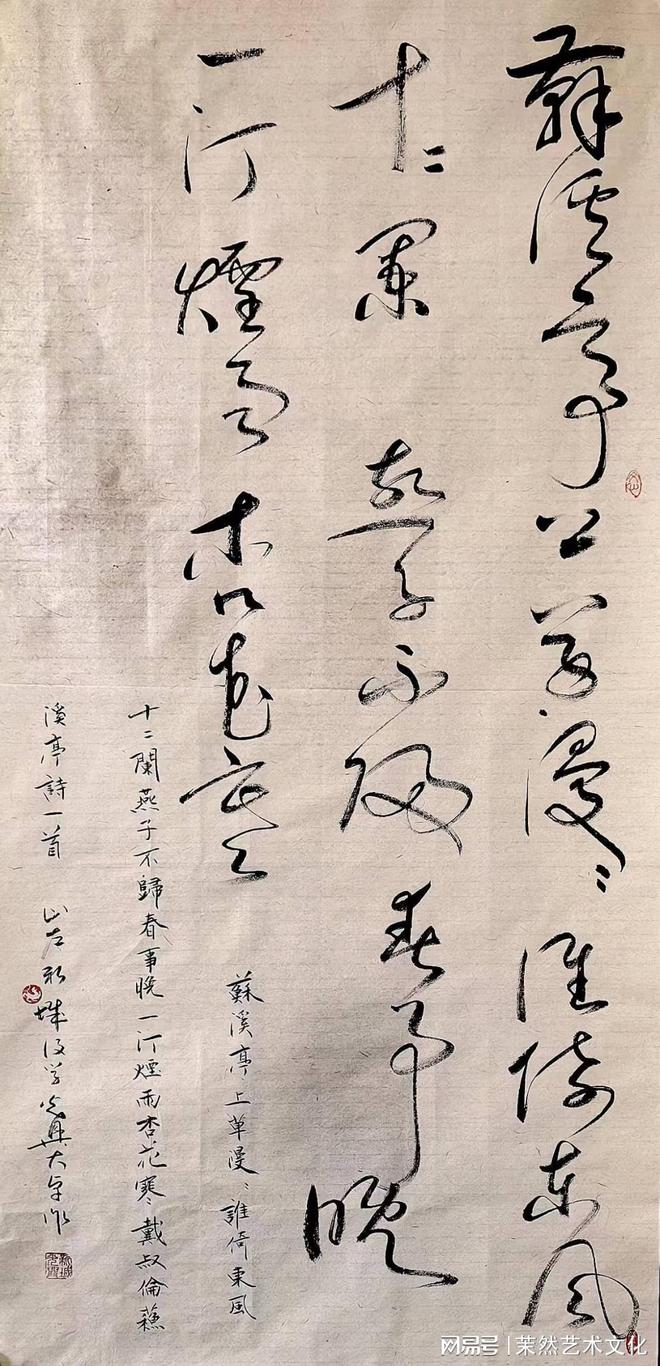 蘇溪亭上草漫〻誰倚東風
十二闌燕子不歸春事晚
一汀煙雨杏花寒
蘇溪亭上草漫〻誰倚東風
十二闌燕子不歸春事晚一汀煙雨杏花寒戴叔倫蘇
溪亭詩一首 山左
網易号 | 茉然艺术文化